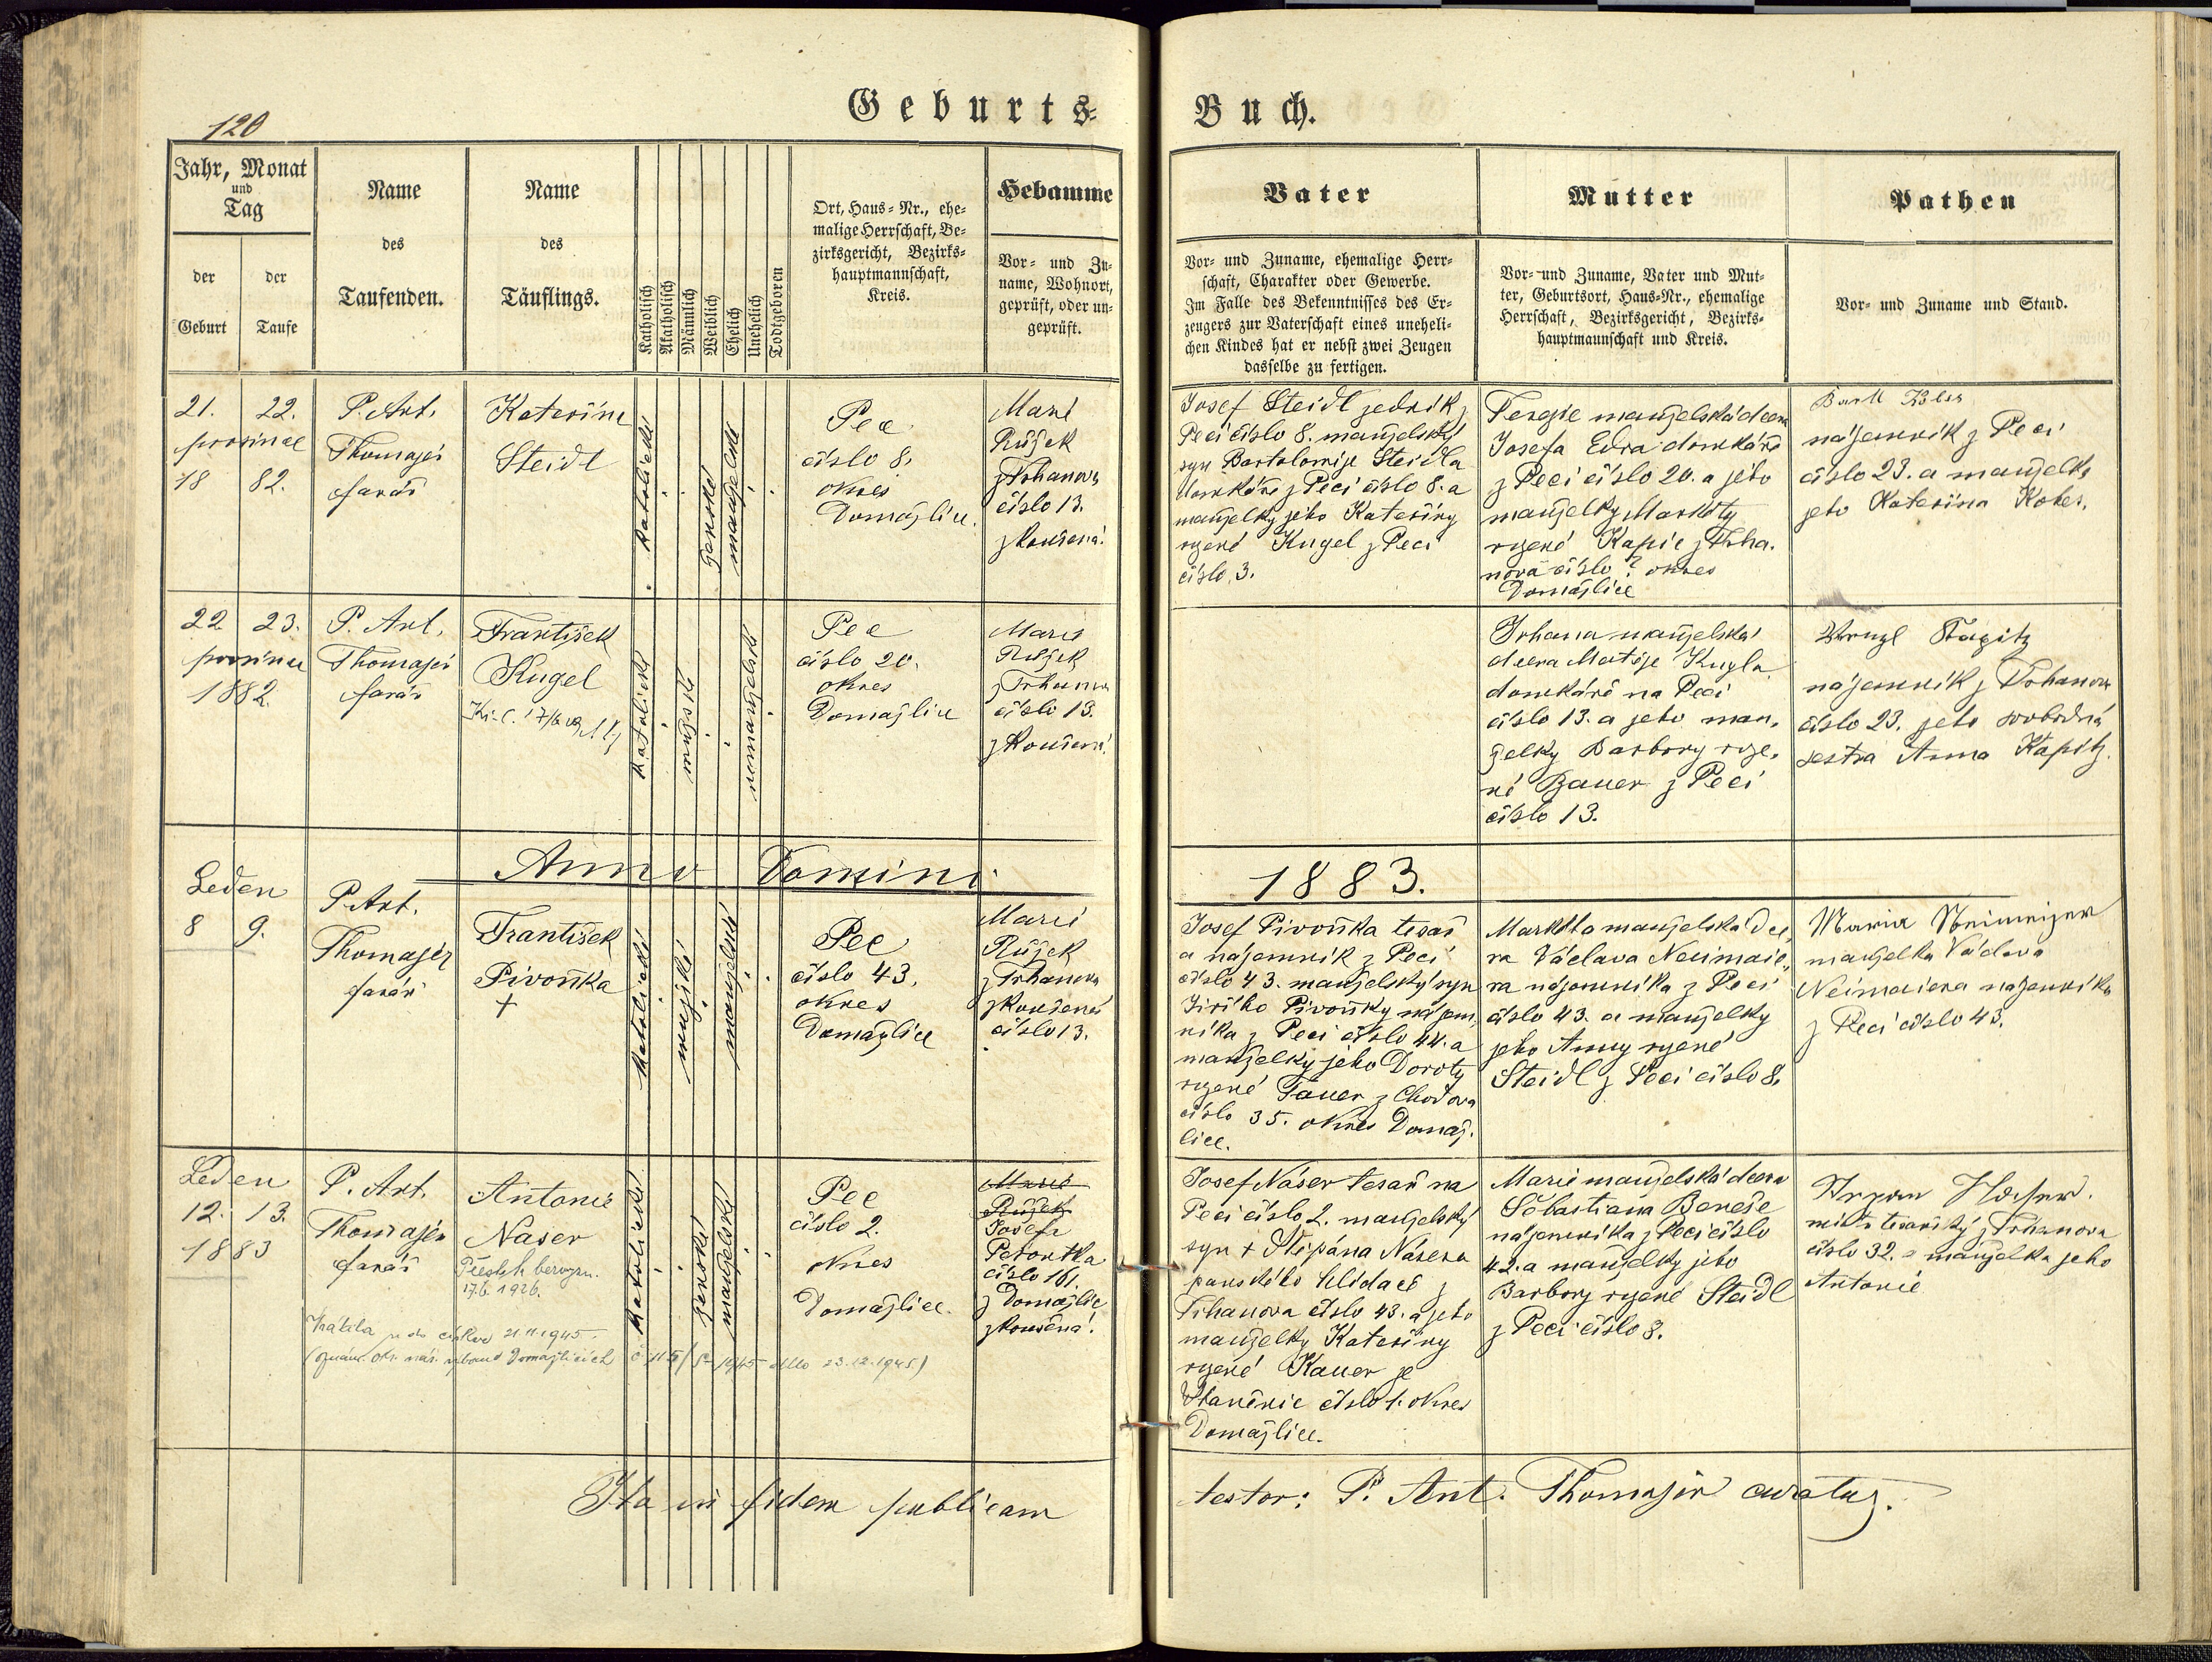 120
Geburts-
Buch.
Jahr, Monat
und
Tag
der
Geburt
der
Taufe
Name
des
Taufenden.
Name
des
Täuflings.
Katholisch
Akatholisch
Männlich
Weiblich
Ehelich
Unehelich
Todtgeboren
Ort, Haus-Nr., ehe-
malige Herrschaft, Be-
zirksgericht, Bezirks-
hauptmannschaft,
Kreis.
Hebamme
Vor- und Zu-
name, Wohnort,
geprüft, oder un-
geprüft.
Vater
Vor- und Zuname, ehemalige Herr-
schaft, Charakter oder Gewerbe.
Im Falle des Bekenntnisses des Er-
zeugers zur Vaterschaft eines uneheli-
chen Kindes hat er nebst zwei Zeugen
dasselbe zu fertigen.
Mutter
Vor- und Zuname, Vater und Mut-
ter, Geburtsort, Haus-Nr., ehemalige
Herrschaft, Bezirksgericht, Bezirks-
hauptmannschaft und Kreis.
Pathen
Vor- und Zuname und Stand.
21. 22.
prosince
18 82.
P. Ant.
Thomajer
farář
Kateřina
Steidl
katolické
ženské
manželské
Pec
číslo 8.
okres
Domažlice.
Marie
Růžek
z Trhanova
číslo 13.
zkoušená.
Josef Steidl jedník z
Peci číslo 8. manželský
syn Bartoloměje Steidla
domkáře z Peci číslo 8. a
manželky jeho Kateřiny
rozené Kugel z Peci
číslo 3.
Terezie manželská dcera
Josefa Edra domkáře
z Peci číslo 20. a jeho
manželky Markéty
rozené Kapic z Trha-
nova číslo ? okres
Domažlice
nájemník z Peci
číslo 23. a manželka
jeho Kateřina
22 23.
prosince
1882.
P. Ant.
Thomajer
farář
František
Kugel
katolické
mužské
nemanželské
Pec
číslo 20.
okres
Domažlice
Marie
Růžek
z Trhanova
číslo 13.
zkoušená.
Johana manželská
dcera Matěje Kugla
domkáře na Peci
číslo 13. a jeho man-
želky Barbory roze-
né Bauer z Peci
číslo 13.
nájemník z Trhanova
číslo 23. jeho svobodná
sestra Anna Kapitz.
Anno Domini
1883.
Leden
8 9.
P. Ant.
Thomajer
farář
František
Pivoňka
+
katolické
mužské
manželské
Pec
číslo 43.
okres
Domažlice
Marie
Růžek
z Trhanova
zkoušená
číslo 13.
Josef Pivoňka tesař
a nájemník z Peci
číslo 43. manželský syn
Jiřího Pivoňky nájem-
níka z Peci číslo 44. a
manželky jeho Doroty
rozené Tauer z Chodova
číslo 35. okres Domaž-
lice.
Markéta manželská dce-
ra Václava Neumaie-
ra nájemníka z Peci
číslo 43. a manželky
jeho Anny rozené
Steidl z Peci číslo 8.
Maria
manželka Václava
Neimaiera nájemníka
z Peci číslo 43.
Leden
12. 13.
1883
P. Ant.
Thomajer
farář
Antonie
Naser
17.6. 1926.
Vrátila se do církve 21.11.1945.
katolické
ženské
manželské
Pec
číslo 2.
okres
Domažlice.
Marie
Růžek
Josefa
číslo 161.
z Domažlic
zkoušená.
Josef Náser tesař na
Peci číslo 2. manželský
syn + Štěpána Násera
panského hlídače z
Trhanova číslo 43. a jeho
manželky Kateřiny
rozené Kauer ze
Stanětic číslo 1. okres
Domažlice.
Marie manželská dcera
Šebastiana Beneše
nájemníka z Peci číslo
42. a manželky jeho
Barbory rozené Steidl
z Peci číslo 8.
mistr tesařský z Trhanova
číslo 32. a manželka jeho
Antonie
Ita in fidem publicam
testor: P. Ant. Thomajer curatus.